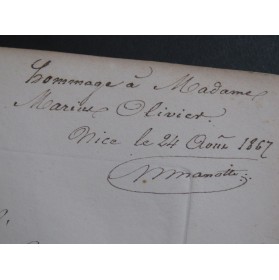 hommage à Madame
Marius Olivier.
Nice le 24 Août 1867